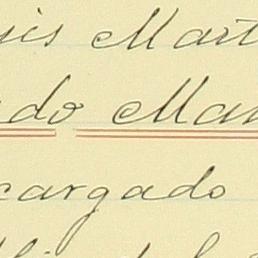 sis Mart
do Man
cargado